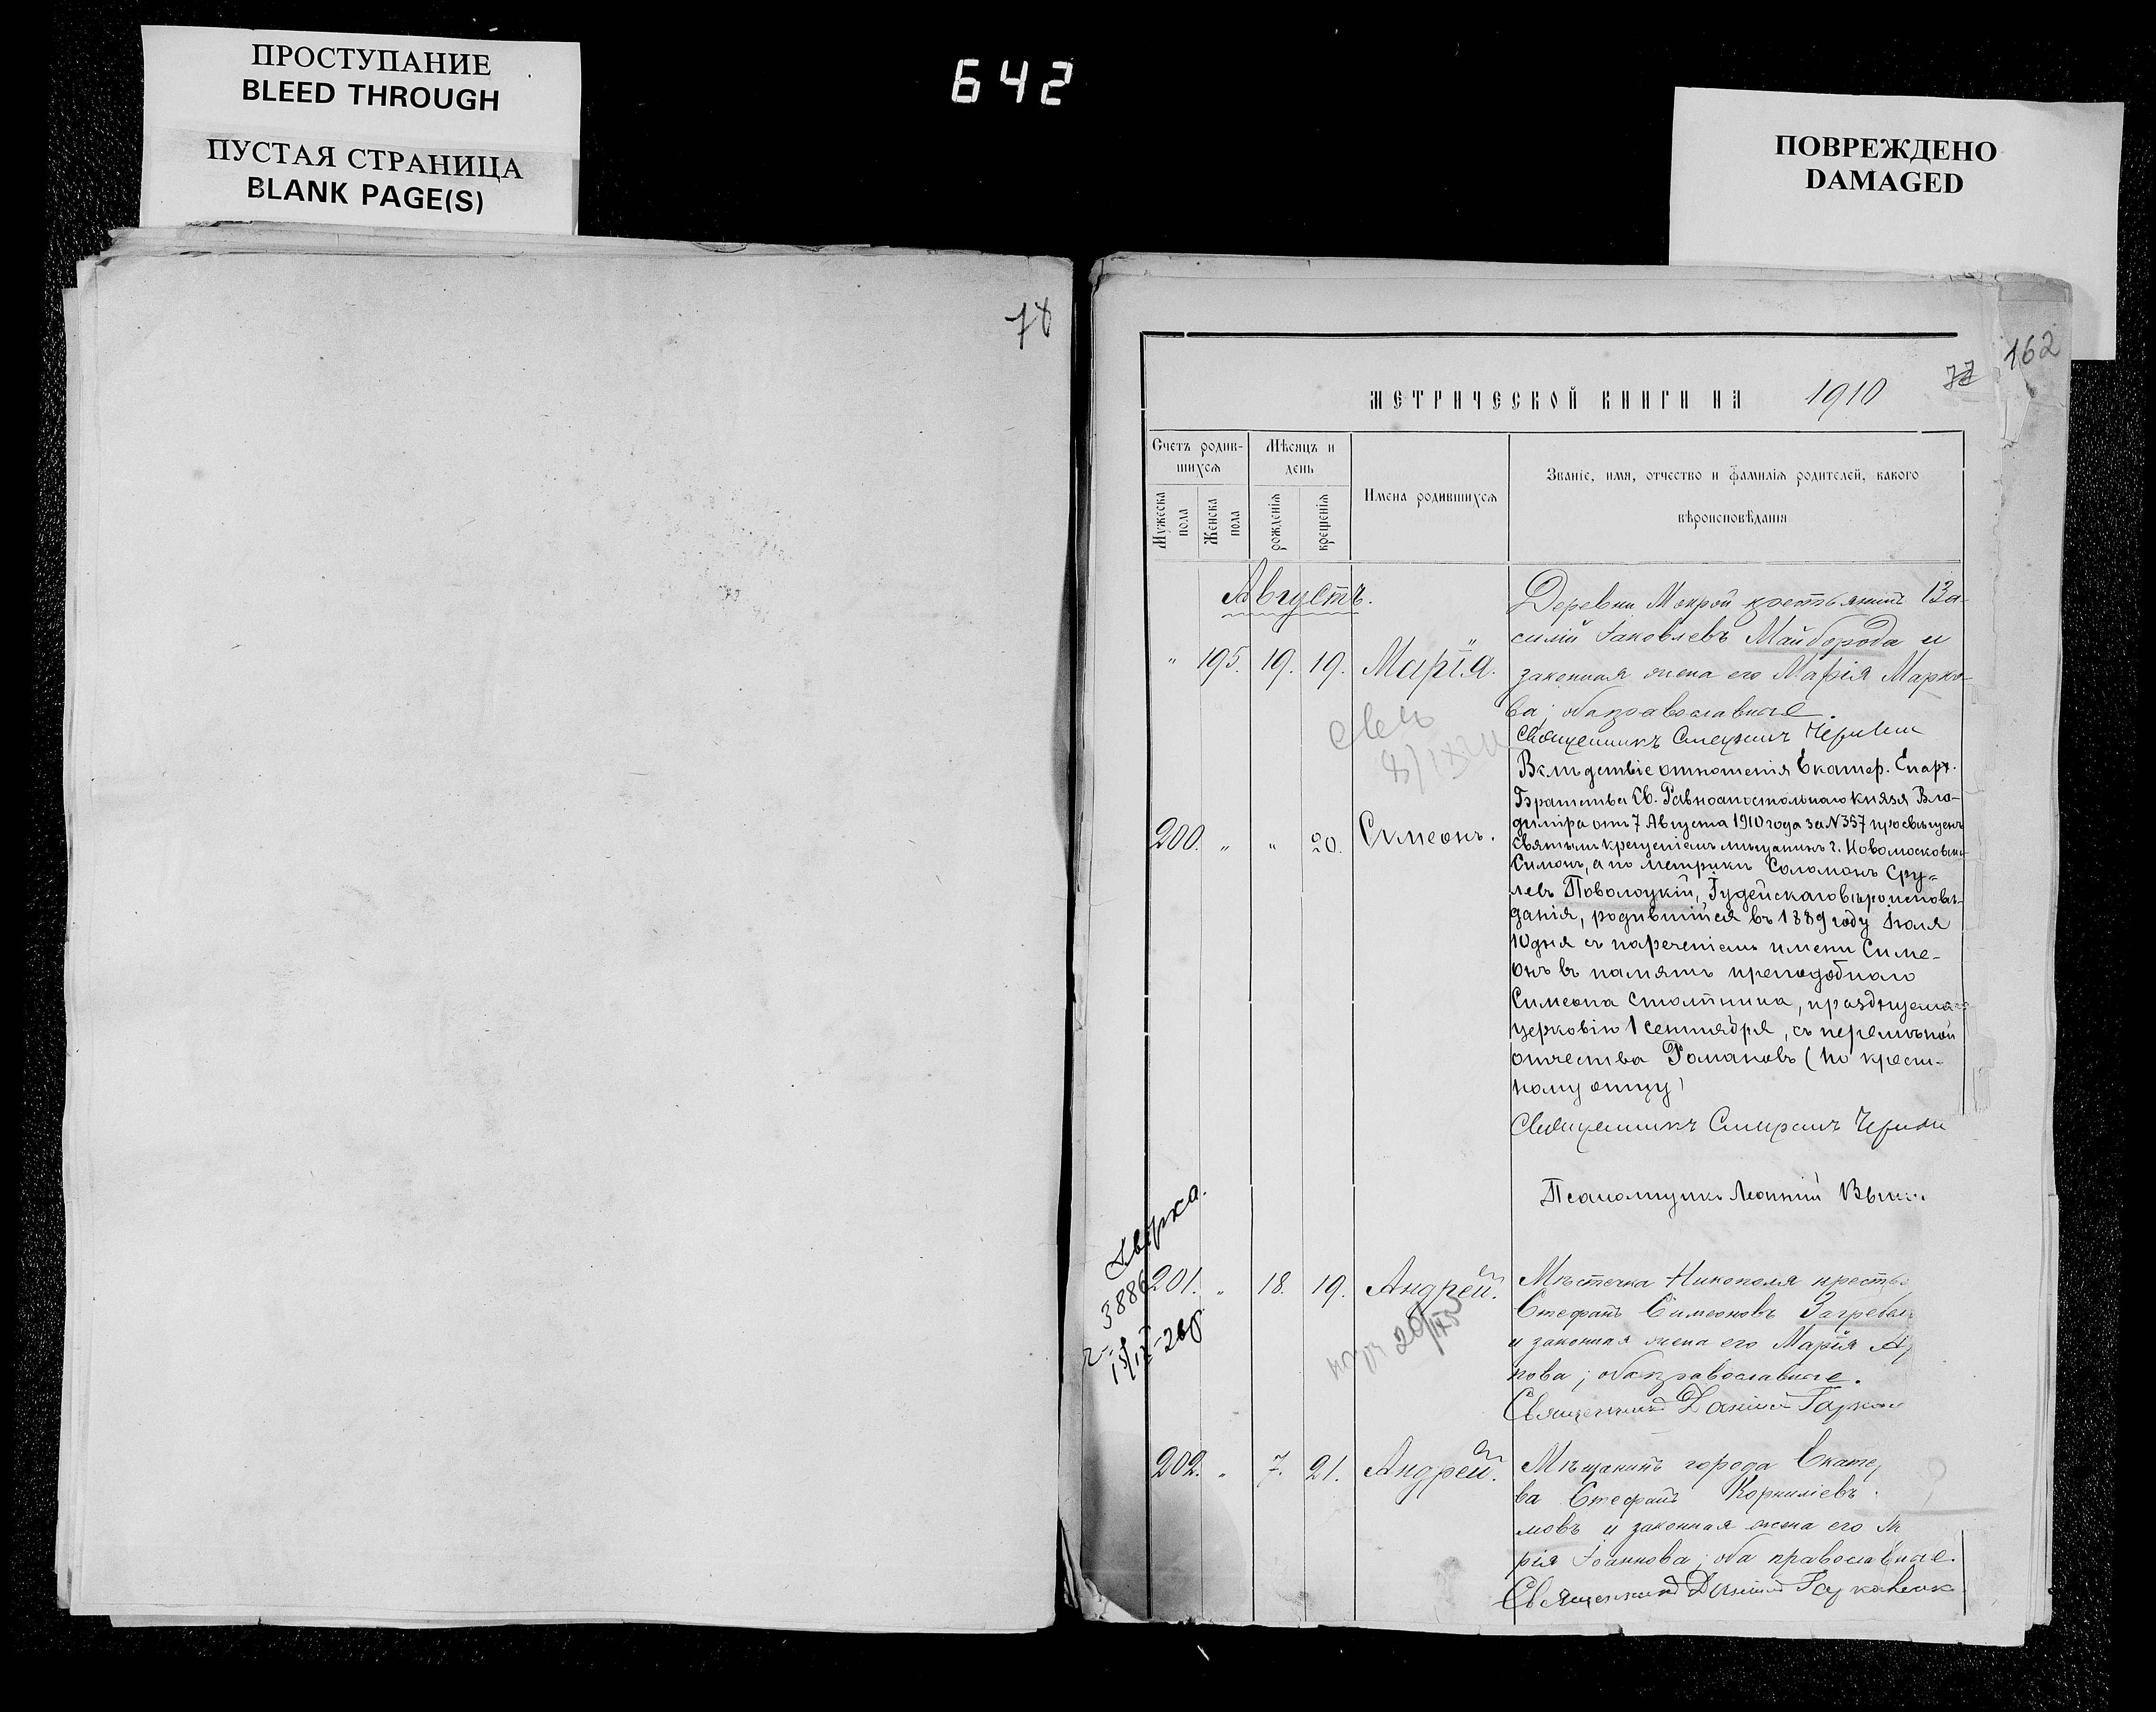 ПРОСТУПАНИЕ
BLEED THROUGH
ПУСТАЯ СТРАНИЦА
BLANK PAGE(S)
642
ПОВРЕЖДЕНО
DAMAGED
78
162
77
МЕТРИЧЕСКОЙ КНИГИ НА 1910
Счетъ родив-
шихся
Мѣсяцъ и
день
Имена родившихся
Званіе, имя, отчество и фамилія родителей, какого
вѣроисповѣданія
Мужеска
пола
Женска
пола
рожденія
крещенія
Августъ.
Деревни Мокрой крестьянинъ Ва-
силій Іаковлевъ Майборода и
" 195. 19. 19. Марія.
законная жена его Марія Марко-
ва; оба православные.
Священникъ
Вслѣдствіе отношенія Екатер. Епарх.
Братства Св. Равноапостольнаго князя Вла-
диміра отъ 7 Августа 1910 года за N 357 просвѣщенъ
200. " " 20. Симеонъ.
святымъ крещеніемъ мѣщанинъ г. Новомосковска
Симонъ, а по метрикѣ Соломонъ Сру-
левъ Поволоцкій, Іудейскаго вѣроисповѣ-
данія, родившійся въ 1889 году Іюля
10 дня съ нареченіемъ имени Симе-
онъ въ память преподобнаго
Симеона столпника, празднуема
церковію 1 сентября, съ перемѣной
отчества Романовъ (по крест-
ному отцу)
Священникъ
Псаломщикъ
3886
201. " 18. 19. Андрей.
Мѣстечка Никополя крестья
Стефанъ Симеоновъ
и законная жена его Марія
нова; оба православные.
Священникъ Даніилъ
202. " 7. 21. Андрей.
Мѣщанинъ города Екате
ва Стефанъ Корниліевъ
мовъ и законная жена его М
рія Іоаннова, оба православные.
Священникъ Даніилъ